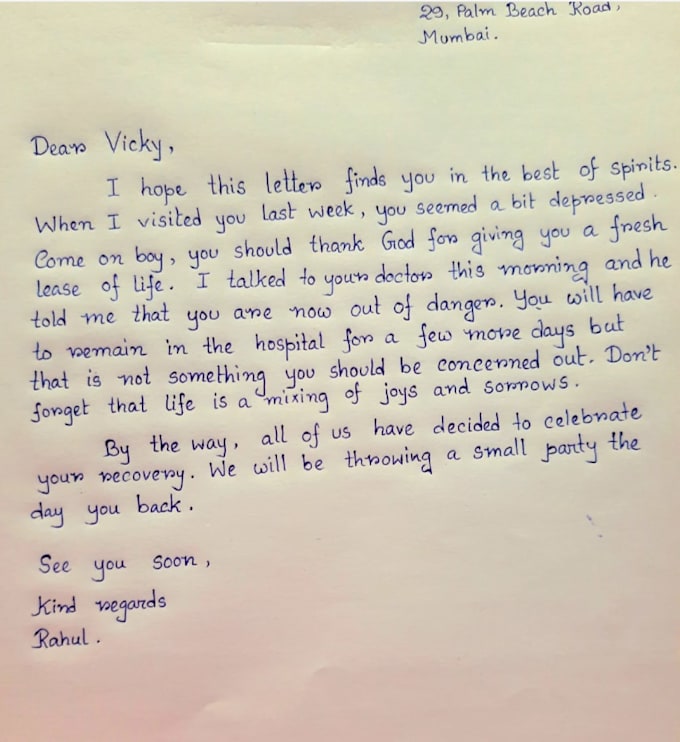 29, Palm Beach Road,
Mumbai.
Dear Vicky,
I hope this letter finds you in the best of spirits.
When I visited you last week, you seemed a bit depressed.
Come on boy, you should thank God for giving you a fresh
lease of life. I talked to your doctor this morning and he
told me that you are now out of danger. You will have
to remain in the hospital for a few more days but
that is not something you should be concerned out. Don't
forget that life is a mixing of joys and sorrows.
By the way, all of us have decided to celebrate
your recovery. We will be throwing a small party the
day you back.
See you soon,
Kind regards
Rahul.